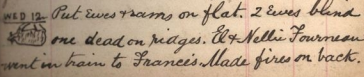 WED 12 Put Ewes & rams on flat. 2 Ewes blind
one dead on ridges. El & Nellie Fourneau
went in train to Francis. Made fires on back.